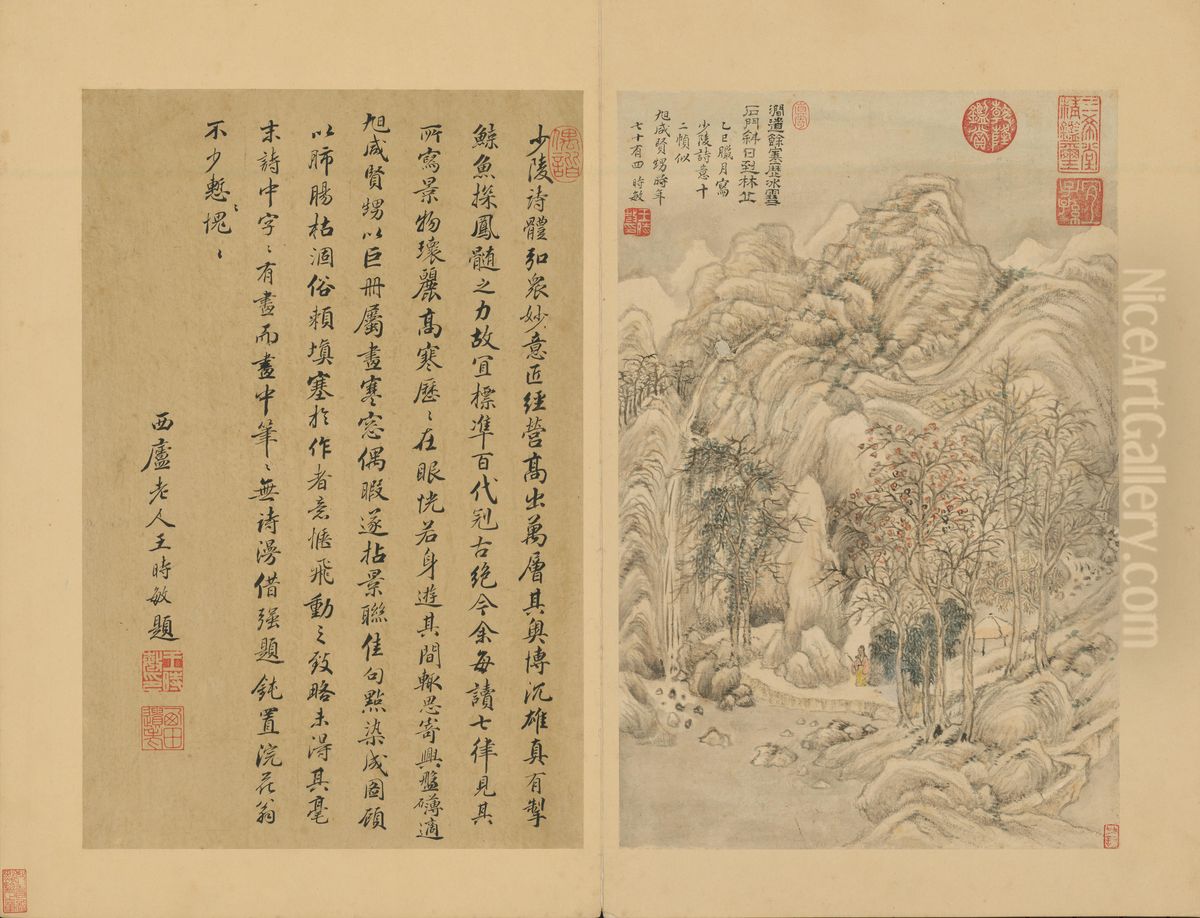 澗道餘寒歷冰雪
石門斜日到林丘
乙巳臘月寫
少陵詩意十
二幀似
旭咸賢甥時年
七十有四 時敏
乾隆鑑賞
三希堂精鑑璽
宜子孫
偶諧
少陵詩體弘眾妙意匠經營高出萬層其奧博沉雄真有掣
鯨魚探鳳髓之力故宜標準百代冠古絕今余每讀七律見其
所寫景物瓌麗高寒歷〻在眼恍若身遊其間輒思寄興盤礡適
旭咸賢甥以巨冊屬畫寒窓偶暇遂拈景聯佳句點染成圖顧
以肺腸枯涸俗賴填塞於作者意愜飛動之致略未得其毫
末詩中字〻有畫而畫中筆〻無詩漫借強題鈍置浣花翁
不少慙愧〻〻
西廬老人王時敏題
NiceArtGallery.com